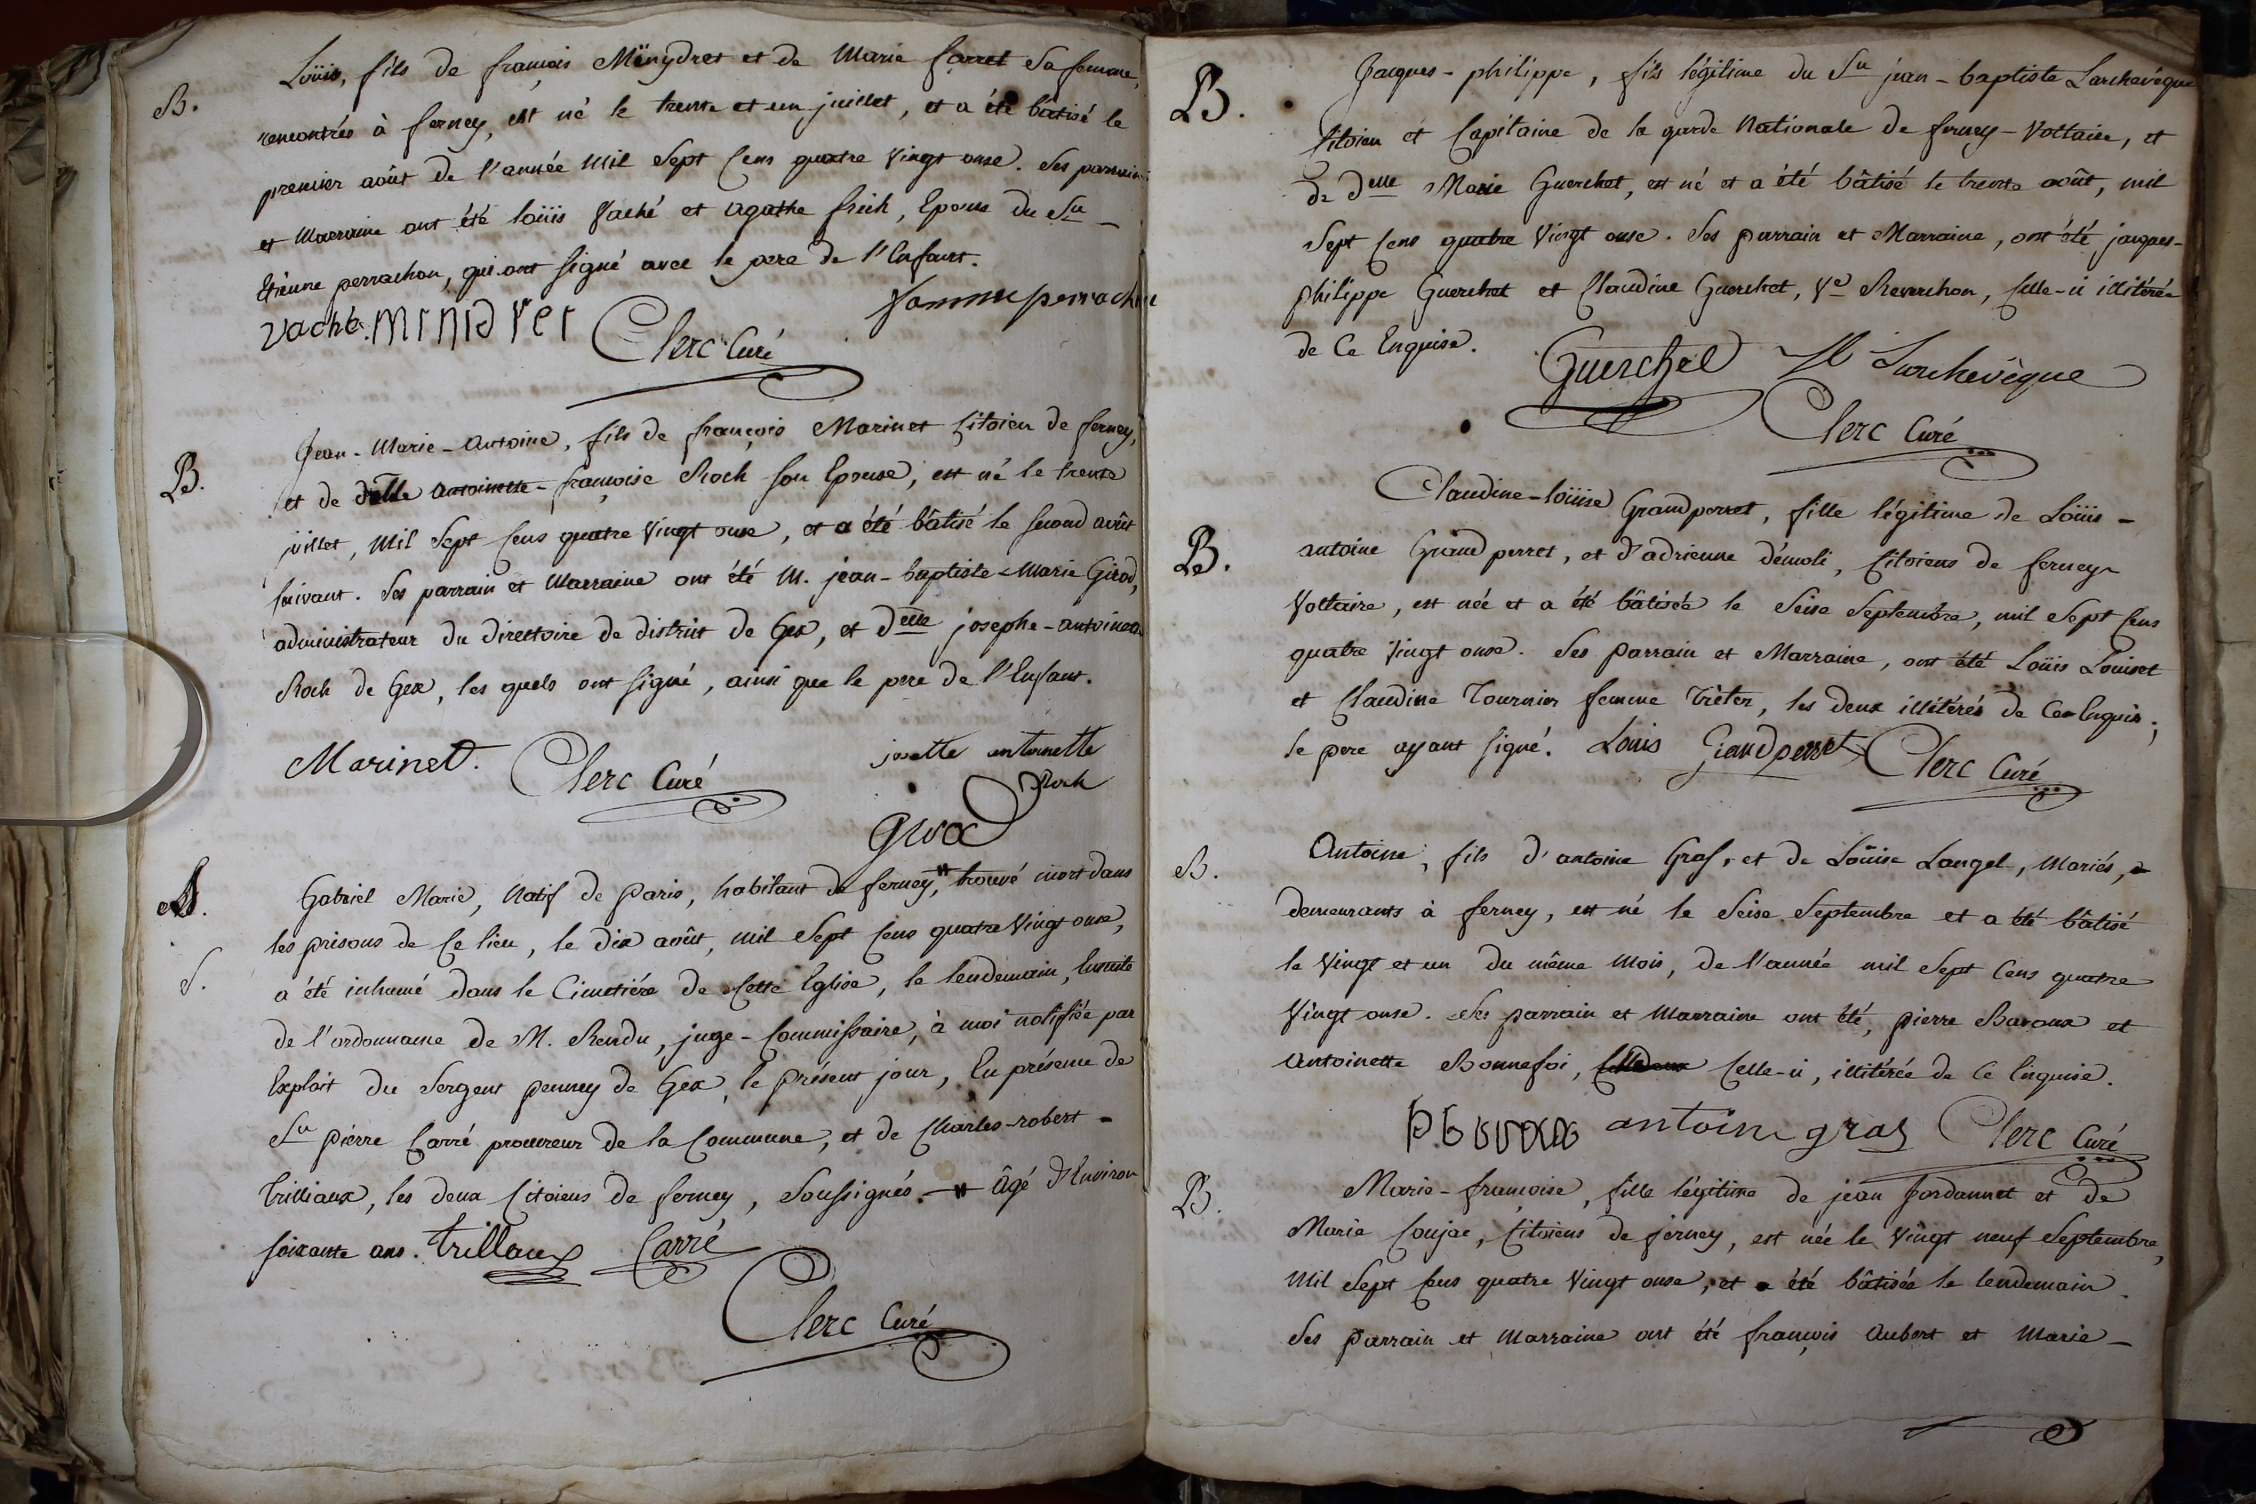 B. Loüis, fils de françois Mënydret et de Marie farret Sa femme,
rencontrés à ferney, est né le trente et un juillet, et a été bâtisé le
premier août de l'année Mil Sept Cens quatre Vingt onse. Ses parrain
et Marraine ont été loüis Vaché et agathe frich, Epouse du Sr
Etienne perrachon, qui ont Signé avec le pere de l'Enfant.
vaché. minidret Clerc Curé femme perrachon
B. Jean-Marie-Antoine, fils de françois Marinet Citoien de ferney,
et de dlle antoinette-françoise Roch son Epouse, est né le trente
juillet, Mil Sept Cens quatre Vingt onse, et a été bâtisé le Second août
suivant. Ses parrain et Marraine ont été M. jean-baptiste-Marie Girod,
administrateur du directoire de district de Gex, et delle josephe-antoinette
Roch de Gex, les quels ont signé, ainsi que le pere de l'Enfant.
Marinet. Clerc Curé josette antoinette
Roch
Girod
S. Gabriel Marie, Natif de Paris, habitant de ferney, # trouvé mort dans
les prisons de Ce lieu, le dix août, mil Sept Cens quatre Vingt onse,
S. a été inhumé dans le Cimetiére de Cette Eglise, le lendemain, Ensuite
de l'ordonnance de M. Rendu, juge-Commissaire, à moi notifiée par
Exploit du Sergent penney de Gex, le Présent jour, En présence de
Sr pierre Carré procureur de la Commune, et de Charles-robert-
trilliaux, les deux Citoiens de ferney, Soussignés. # Âgé d'Environ
soixante ans. trillaux Carré
Clerc Curé
B. Jacques-philippe, fils légitime du Sr jean-baptiste Larchevêque
Citoien et Capitaine de la garde Nationale de ferney-Voltaire, et
de delle Marie Guerchet, est né et a été bâtisé le trente août, mil
Sept Cens quatre Vingt onse. Ses parrain et Marraine, ont été jacques-
philippe Guerchet et Claudine Guerchet, Ve Reverchon, Celle-ci illitérée
de Ce Enquise. Guerchet Larchevêque
Clerc Curé
Claudine-loüise Grandperret, fille légitime de Loüis-
B. antoine Grandperret, et d'adrienne démoli, Citoiens de ferney-
Voltaire, est née et a été bâtisée le Seise Septembre, mil Sept Cens
quatre Vingt onse. Ses Parrain et Marraine, ont été Loüis Louiset
et Claudine Tournier femme Tréter, les deux illitérés de Ce Enquis;
le pere ayant signé. Louis Grandperret Clerc Curé
B. Antoine, fils d'antoine Gras, et de Loüise Langel, Mariés,
demeurants à ferney, est né le Seise Septembre et a été bâtisé
le Vingt et un du même Mois, de l'année mil Sept Cens quatre
Vingt onse. Ses parrain et Marraine ont été, pierre Baroux et
Antoinette Bonnefoi, Celle-ci, illitérée de Ce Enquise.
antoine gras Clerc Curé
B. Marie-françoise, fille légitime de jean Jordannet et de
Marie Coujac, Citoiens de ferney, est née le Vingt neuf Septembre,
Mil Sept Cens quatre Vingt onse, et a été bâtisée le lendemain.
Ses parrain et Marraine ont été françois Aubert et Marie-